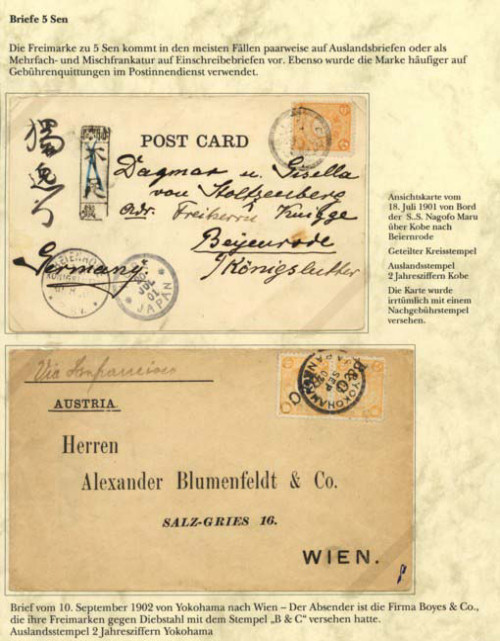 Briefe 5 Sen
Die Freimarke zu 5 Sen kommt in den meisten Fällen paarweise auf Auslandsbriefen oder als
Mehrfach- und Mischfrankatur auf Einschreibebriefen vor. Ebenso wurde die Marke häufiger auf
Gebührenquittungen im Postinnendienst verwendet.
POST CARD
Dagmar u. Gisella
von Stoltzenberg
Adr. Freiherrn Knigge
Beyenrode
Germany
Königslutter
JUL
01
JAPAN
Ansichtskarte vom
18. Juli 1901 von Bord
der S.S. Nagofo Maru
über Kobe nach
Beiernrode
Geteilter Kreisstempel
Auslandsstempel
2 Jahresziffern Kobe
Die Karte wurde
irrtümlich mit einem
Nachgebührstempel
versehen.
Via
AUSTRIA
B&C
YOKOHAMA
SEP
JAPAN
Herren
Alexander Blumenfeldt & Co.
SALZ-GRIES 16.
WIEN.
Brief vom 10. September 1902 von Yokohama nach Wien – Der Absender ist die Firma Boyes & Co.,
die ihre Freimarken gegen Diebstahl mit dem Stempel „B & C" versehen hatte.
Auslandsstempel 2 Jahresziffern Yokohama